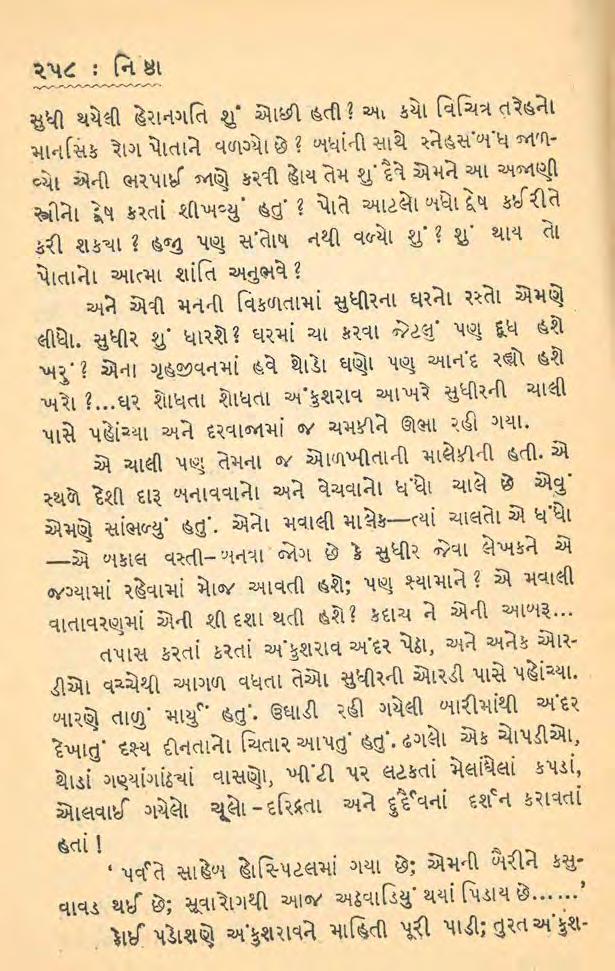 ૨૫૮ : નિષ્ઠા
સુધી થયેલી હેરાનગતિ શું ઓછી હતી? આ કયો વિચિત્ર તરેહનો
માનસિક રોગ પોતાને વળગ્યો છે? બધાંની સાથે સ્નેહસંબંધ જાળ-
વ્યો એની ભરપાઈ જાણે કરવી હોય તેમ શું દૈવે એમને આ અજાણી
સ્ત્રીનો દ્વેષ કરતાં શીખવ્યું હતું? પોતે આટલો બધો દ્વેષ કઈ રીતે
કરી શકયા? હજી પણ સંતોષ નથી વળ્યો શું? શું થાય તો
પોતાનો આત્મા શાંતિ અનુભવે?
અને એવી મનની વિકળતામાં સુધીરના ઘરનો રસ્તો એમણે
લીધો. સુધીર શું ધારશે? ઘરમાં ચા કરવા જેટલું પણ દૂધ હશે
ખરું? એના ગૃહજીવનમાં હવે થોડો ઘણો પણ આનંદ રહ્યો હશે
ખરો?...ઘર શોધતા શોધતા અંકુશરાવ આખરે સુધીરની ચાલી
પાસે પહોંચ્યા અને દરવાજામાં જ ચમકીને ઊભા રહી ગયા.
એ ચાલી પણ તેમના જ ઓળખીતાની માલેકીની હતી. એ
સ્થળે દેશી દારૂ બનાવવાનો અને વેચવાનો ધંધો ચાલે છે એવું
એમણે સાંભળ્યું હતું. એનો મવાલી માલેક—ત્યાં ચાલતો એ ધંધો
—એ બકાલ વસ્તી–બનવા જોગ છે કે સુધીર જેવા લેખકને એ
જગ્યામાં રહેવામાં મોજ આવતી હશે; પણ શ્યામાને? એ મવાલી
વાતાવરણમાં એની શી દશા થતી હશે? કદાચ ને એની આબરૂ...
તપાસ કરતાં કરતાં અંકુશરાવ અંદર પેઠા, અને અનેક ઓર-
ડીઓ વચ્ચેથી આગળ વધતા તેઓ સુધીરની ઓરડી પાસે પહોંચ્યા.
બારણે તાળું માર્યું હતું. ઉઘાડી રહી ગયેલી બારીમાંથી અંદર
દેખાતું દશ્ય દીનતાનો ચિતાર આપતું હતું. ઢગલો એક ચોપડીઓ,
થોડાં ગણ્યાંગાંઠ્યાં વાસણો, ખીંટી પર લટકતાં મેલાંઘેલાં કપડાં,
ઓલવાઈ ગયેલો ચૂલો – દરિદ્રતા અને દુર્દૈવનાં દર્શન કરાવતાં
હતાં!
‘પર્વતે સાહેબ હોસ્પિટલમાં ગયા છે; એમની બૈરીને કસુ-
વાવડ થઈ છે; સૂવારોગથી આજ અઠવાડિયું થયાં પિડાય છે......’
કોઈ પડોશણે અંકુશરાવને માહિતી પૂરી પાડી; તુરત અંકુશ-